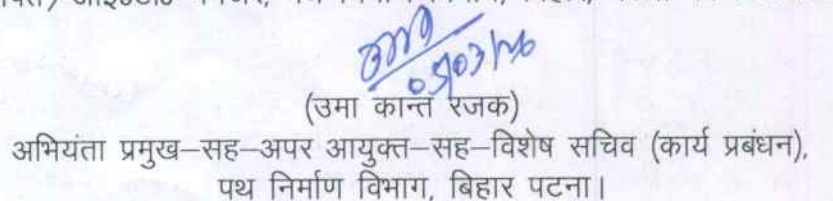 05/03/26
(उमा कान्त रजक)
अभियंता प्रमुख–सह–अपर आयुक्त–सह–विशेष सचिव (कार्य प्रबंधन),
पथ निर्माण विभाग, बिहार पटना।